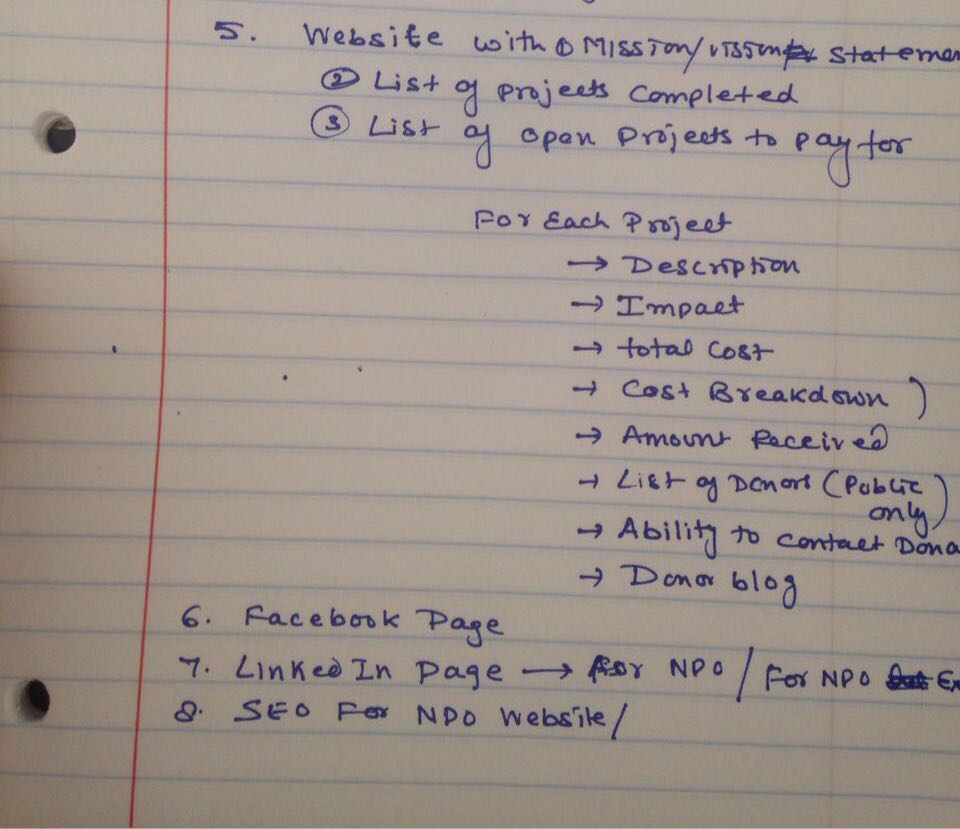 5. Website with ① MISSION/VISION Statemen
② List of projects completed
③ List of open projects to pay for
For Each Project
→ Description
→ Impact
→ total cost
→ Cost Breakdown )
→ Amount Received
→ List of Donors (Public
only)
→ Ability to contact Dona
→ Donor blog
6. Facebook Page
7. LinkedIn Page → for NPO / For NPO Ex
8. SEO For NPO Website/